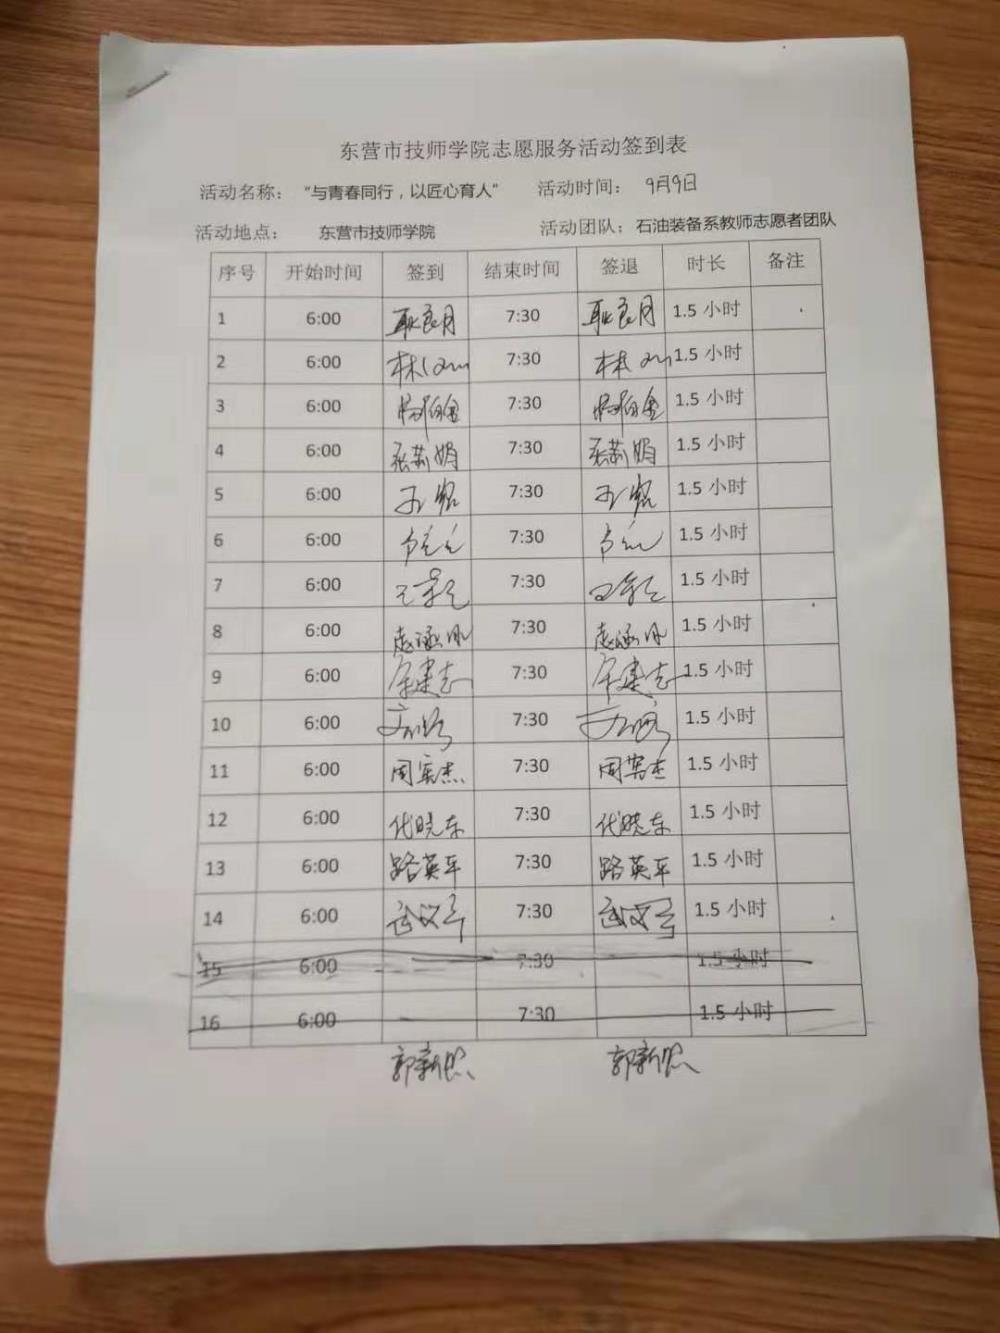 东营市技师学院志愿服务活动签到表
活动名称： “与青春同行，以匠心育人” 活动时间： 9月9日
活动地点： 东营市技师学院 活动团队：石油装备系教师志愿者团队
序号 开始时间 签到 结束时间 签退 时长 备注
1 6:00 耿良月 7:30 耿良月 1.5 小时
2 6:00 7:30 1.5 小时
3 6:00 杨伯金 7:30 杨伯金 1.5 小时
4 6:00 张莉娟 7:30 张莉娟 1.5 小时
5 6:00 7:30 1.5 小时
6 6:00 7:30 1.5 小时
7 6:00 7:30 1.5 小时
8 6:00 7:30 1.5 小时
9 6:00 7:30 1.5 小时
10 6:00 7:30 1.5 小时
11 6:00 周宪杰 7:30 周宪杰 1.5 小时
12 6:00 代晓东 7:30 代晓东 1.5 小时
13 6:00 路英平 7:30 路英平 1.5 小时
14 6:00 7:30 1.5 小时
15 6:00 7:30 1.5 小时
16 6:00 7:30 1.5 小时
郭新熙 郭新熙